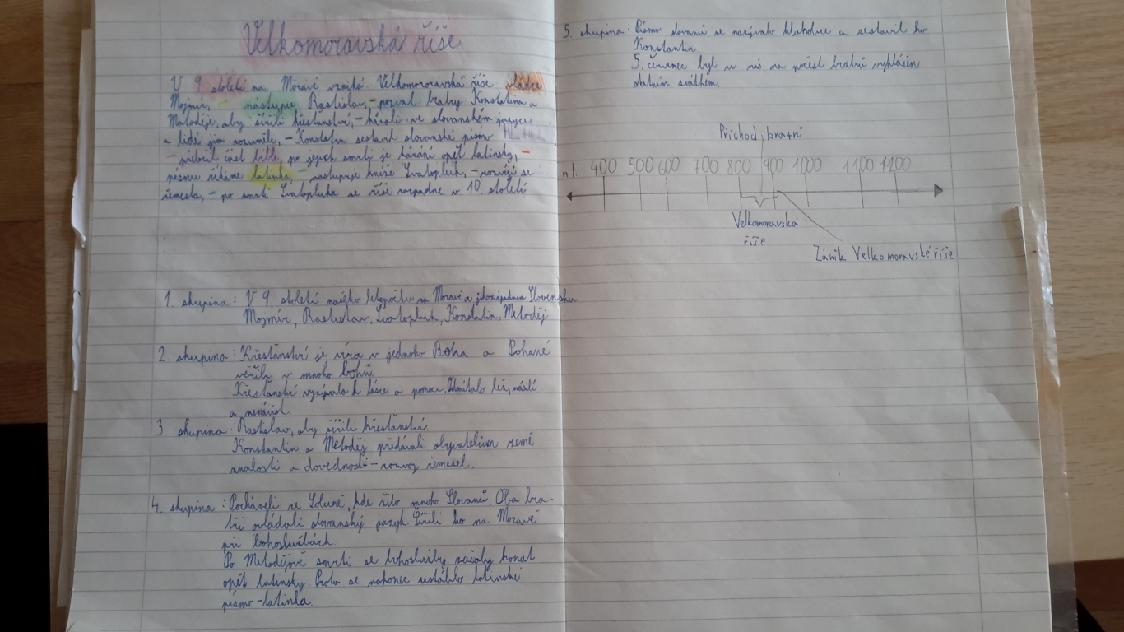 Velkomoravská říše
V 9 století na Moravě vzniká Velkomoravská říše vládce
Mojmír, - nástupce Rastislav, - pozval bratry Konstantina a
Metoděje, aby šířili křesťanství, - kázali ve slovanském jazyce
a lidé jim rozuměli, - Konstantin sestavil slovanské písmo
- přeložil část bible, po jejich smrti se kázání opět latinsky, -
písmu říkáme latinka - nastupuje kníže Svatopluk, - rozvíjí se
řemesla, - po smrti Svatopluka se říše rozpadne v 10 století
1. skupina: V 9 století na Moravě a Slovenska
Mojmír, Rastislav, Svatopluk, Konstantin, Metoděj
2. skupina: Křesťanství je víra v jednoho Boha a Pohané
věřili v mnoho bohů.
Křesťanství vyzývalo k lásce a pomoci.
a nenávist.
3 skupina: Rastislav, aby šířili křesťanství.
Konstantin a Metoděj předávali obyvatelům země
znalosti a dovednosti - rozvoj řemesel.
4. skupina: Pocházeli ze Soluně, kde žilo mnoho Slovanů Oba bra-
tři ovládali slovanský jazyk Šířili ho na Moravě
při bohoslužbách.
Po Metodějově smrti se bohoslužby začaly konat
opět latinsky Proto se nakonec ustálilo latinské
písmo - latinka.
5. skupina: Písmo slovanů se nazývalo hlaholice a sestavil ho
Konstantin.
5. července byl u nás na počest bratrů vyhlášen
státním svátkem.
Příchod bratrů
n.l. 400 500 600 700 800 900 1000 1100 1200
Velkomoravska
říše
Zánik Velkomoravské říše